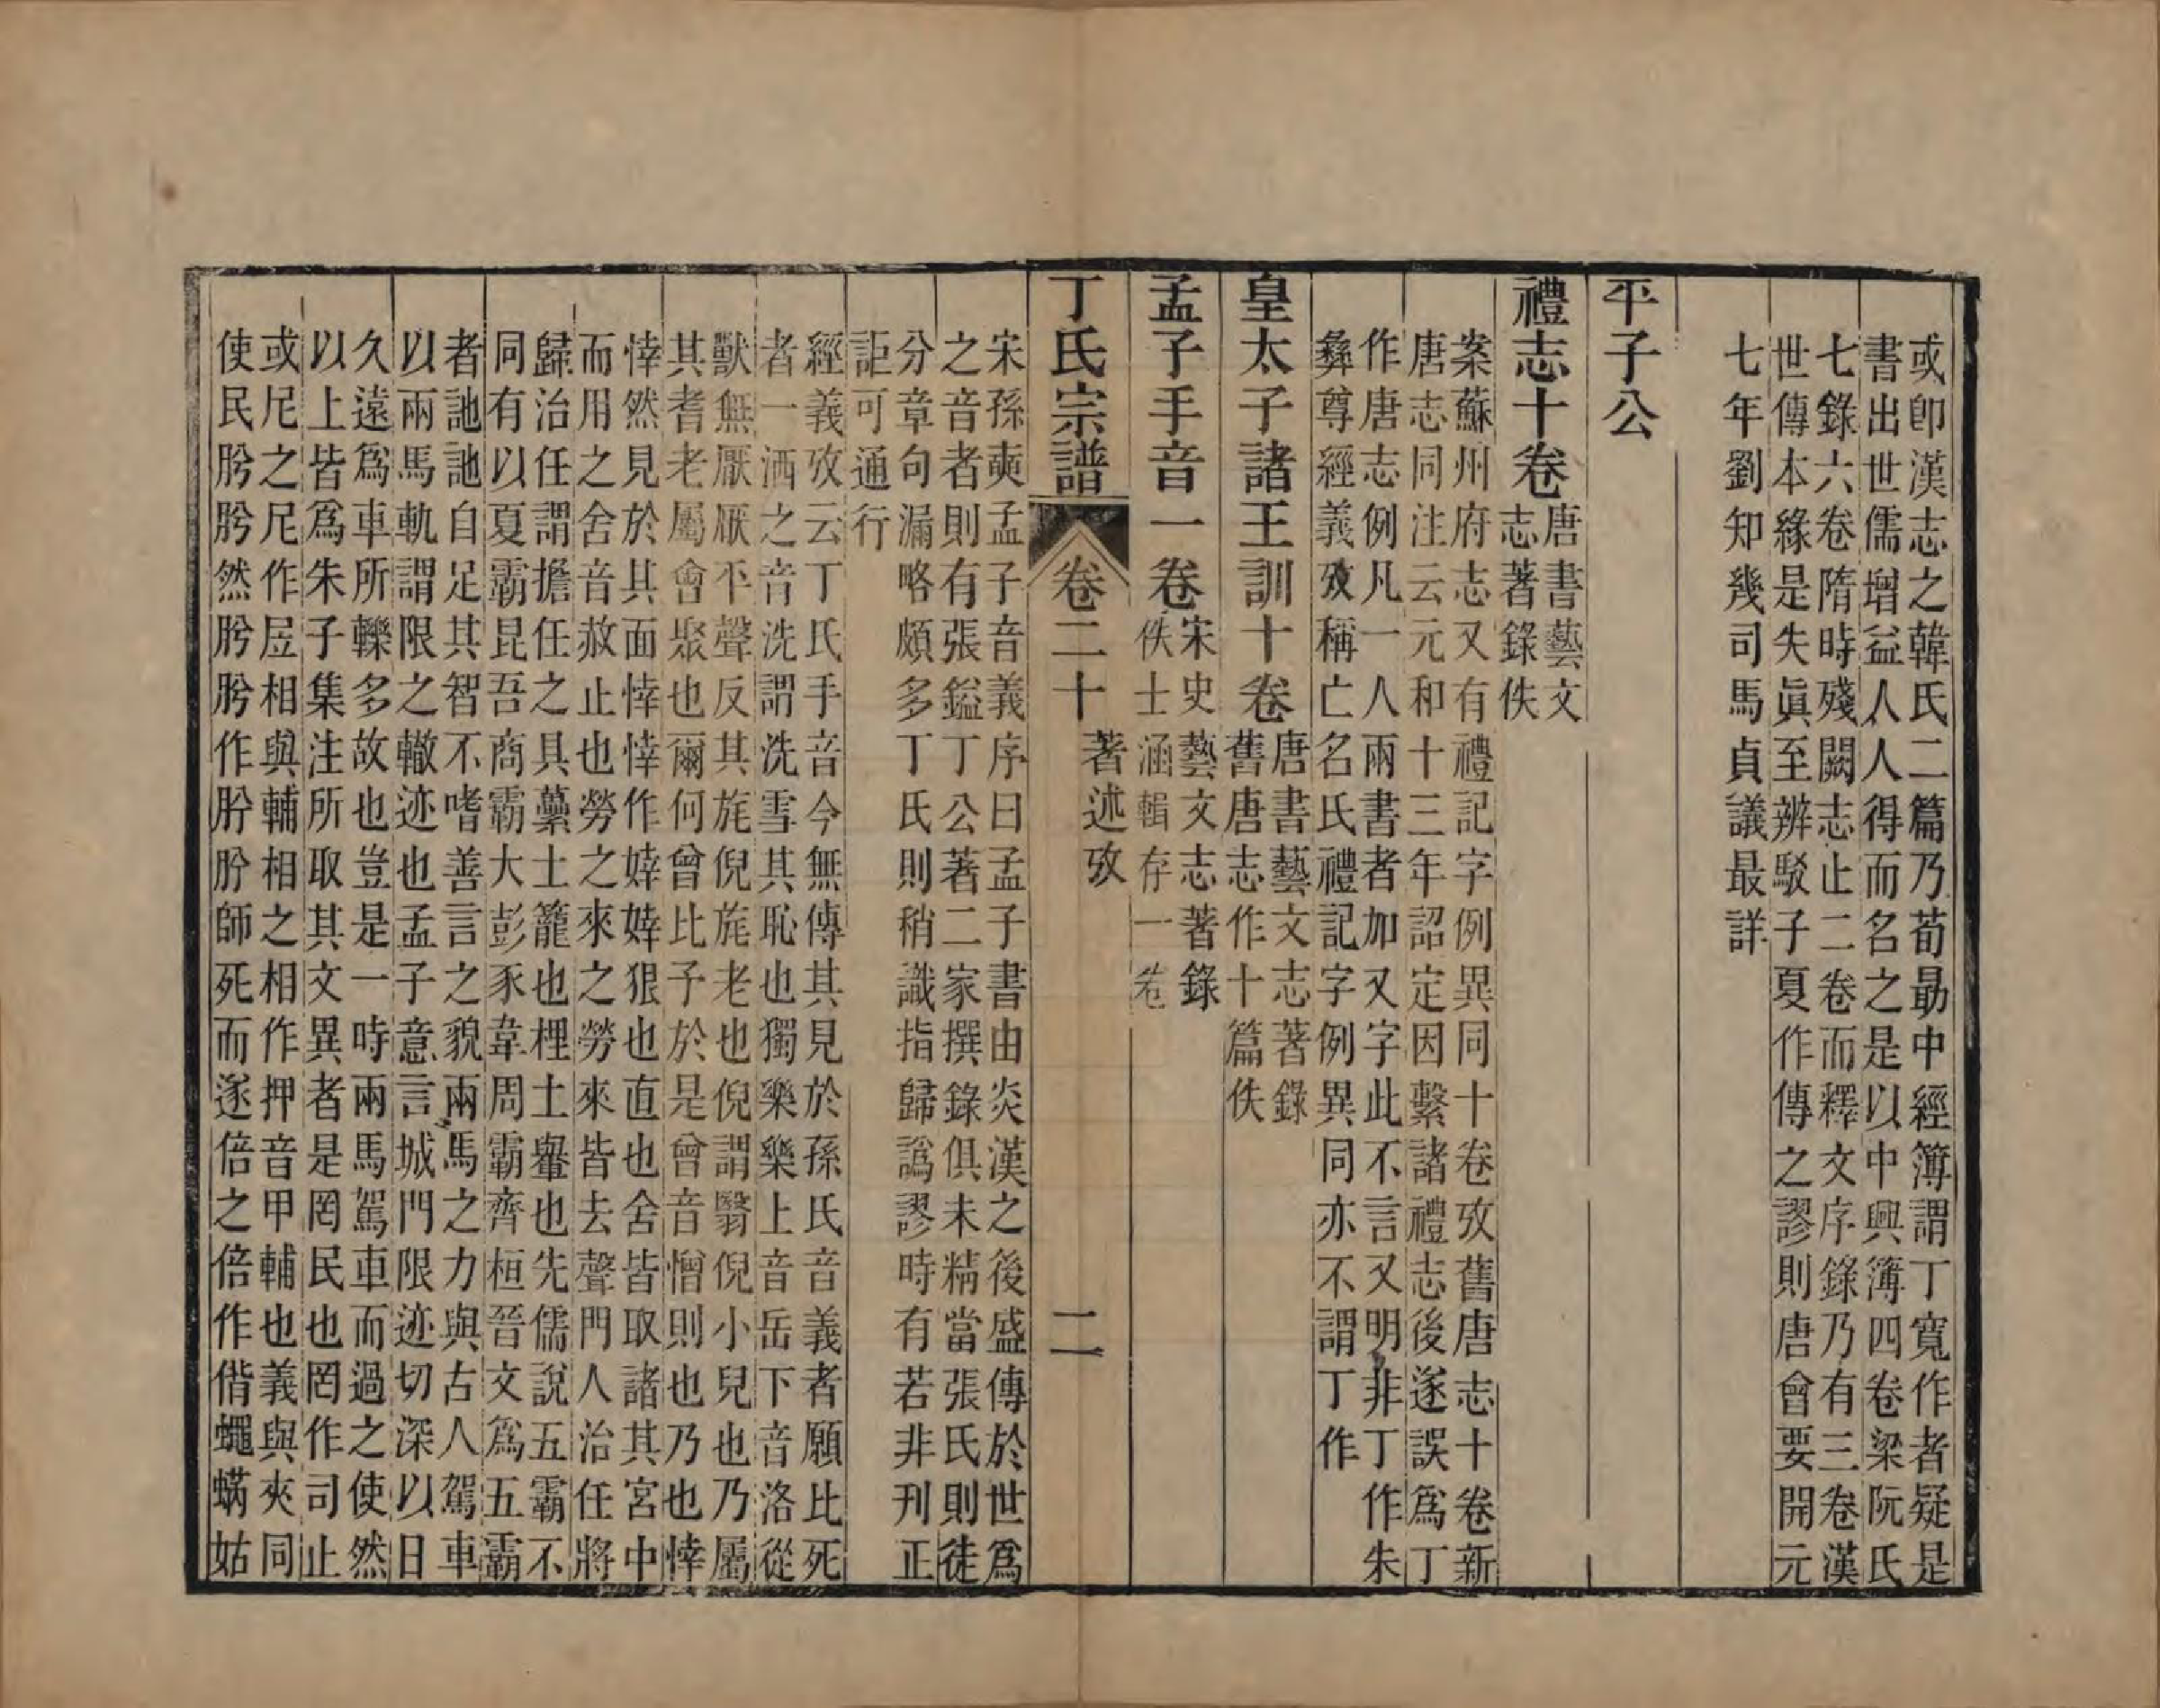 或卽漢志之韓氏二篇乃荀勗中經簿謂丁寬作者疑是
書出世儒增益人人得而名之是以中興簿四卷梁阮氏
七錄六卷隋時殘闕志止二卷而釋文序錄乃有三卷漢
世傳本緣是失眞至辨駁子夏作傳之謬則唐會要開元
七年劉知幾司馬貞議最詳
平子公
禮志十卷
唐書藝文
志著錄佚
案蘇州府志又有禮記字例異同十卷攷舊唐志十卷新
唐志同注云元和十三年詔定因繫諸禮志後遂誤爲丁
作唐志例凡一人兩書者加又字此不言又明非丁作朱
彝尊經義攷稱亡名氏禮記字例異同亦不謂丁作
皇太子諸王訓十卷
唐書藝文志著錄
舊唐志作十篇佚
孟子手音一卷
宋史藝文志著錄
佚士涵輯存一卷
丁氏宗譜 卷二十 著述攷 二
宋孫奭孟子音義序曰孟子書由炎漢之後盛傳於世爲
之音者則有張鎰丁公著二家撰錄俱未精當張氏則徒
分章句漏略頗多丁氏則稍識指歸譌謬時有若非刊正
詎可通行
經義攷云丁氏手音今無傳其見於孫氏音義者願比死
者一洒之音洗謂洗雪其恥也獨樂樂上音岳下音洛從
獸無厭厭平聲反其旄倪旄老也倪謂翳倪小兒也乃屬
其耆老屬會聚也爾何曾比予於是曾音憎則也乃也悻
悻然見於其面悻悻作婞婞狠也直也舍皆取諸其宮中
而用之舍音赦止也勞之來之勞來皆去聲門人治任將
歸治任謂擔任之具蘽土籠也梩土轝也先儒說五霸不
同有以夏霸昆吾商霸大彭豕韋周霸齊桓晉文爲五霸
者訑訑自足其智不嗜善言之貌兩馬之力與古人駕車
以兩馬軌謂限之轍迹也孟子意言城門限迹切深以日
久遠爲車所轢多故也豈是一時兩馬駕車而過之使然
以上皆爲朱子集注所取其文異者是罔民也罔作司止
或尼之尼作𡰥相與輔相之相作押音甲輔也義與夾同
使民肹肹然肹肹作肸肸師死而遂倍之倍作偝蠅蚋姑